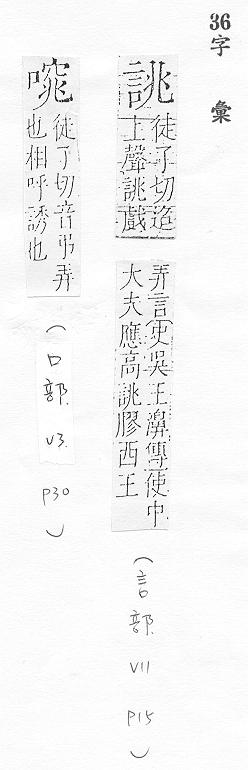 36
字彙
誂
徒了切迢
上聲誂戲
弄言史吳王濞傳使中
大夫應高誂膠西王
(言部 V11 P15)
徒了切音弔弄
也相呼誘也
(口部 V3. P30)